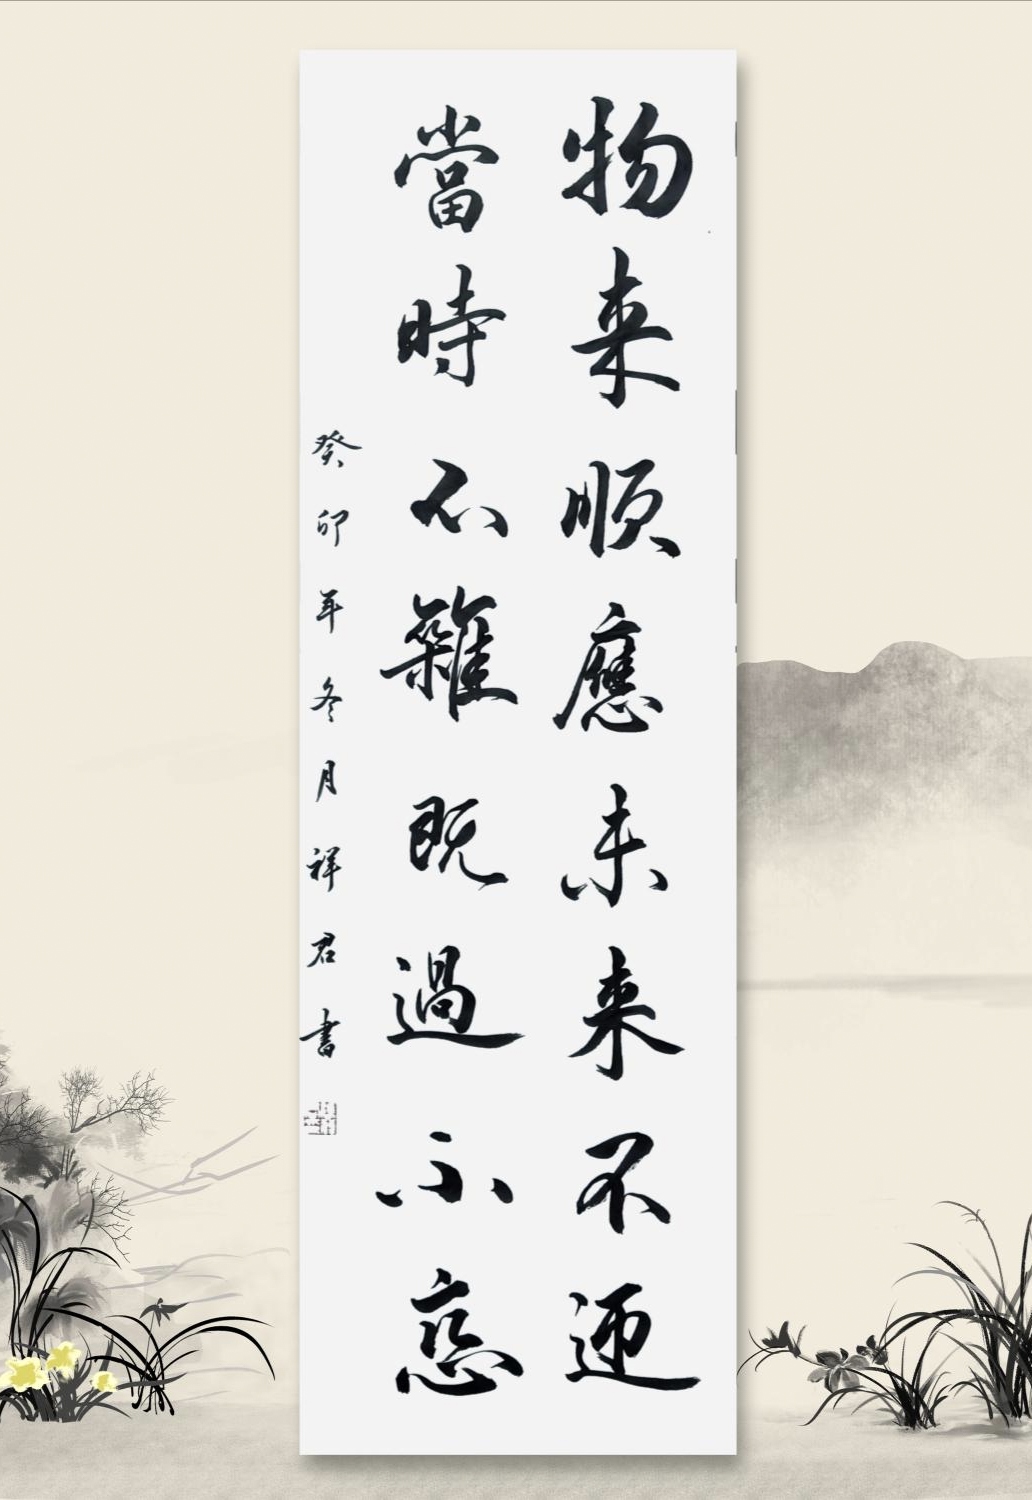 物来顺應未来不迎
當時不雜既過不恋
癸卯年冬月祥君書